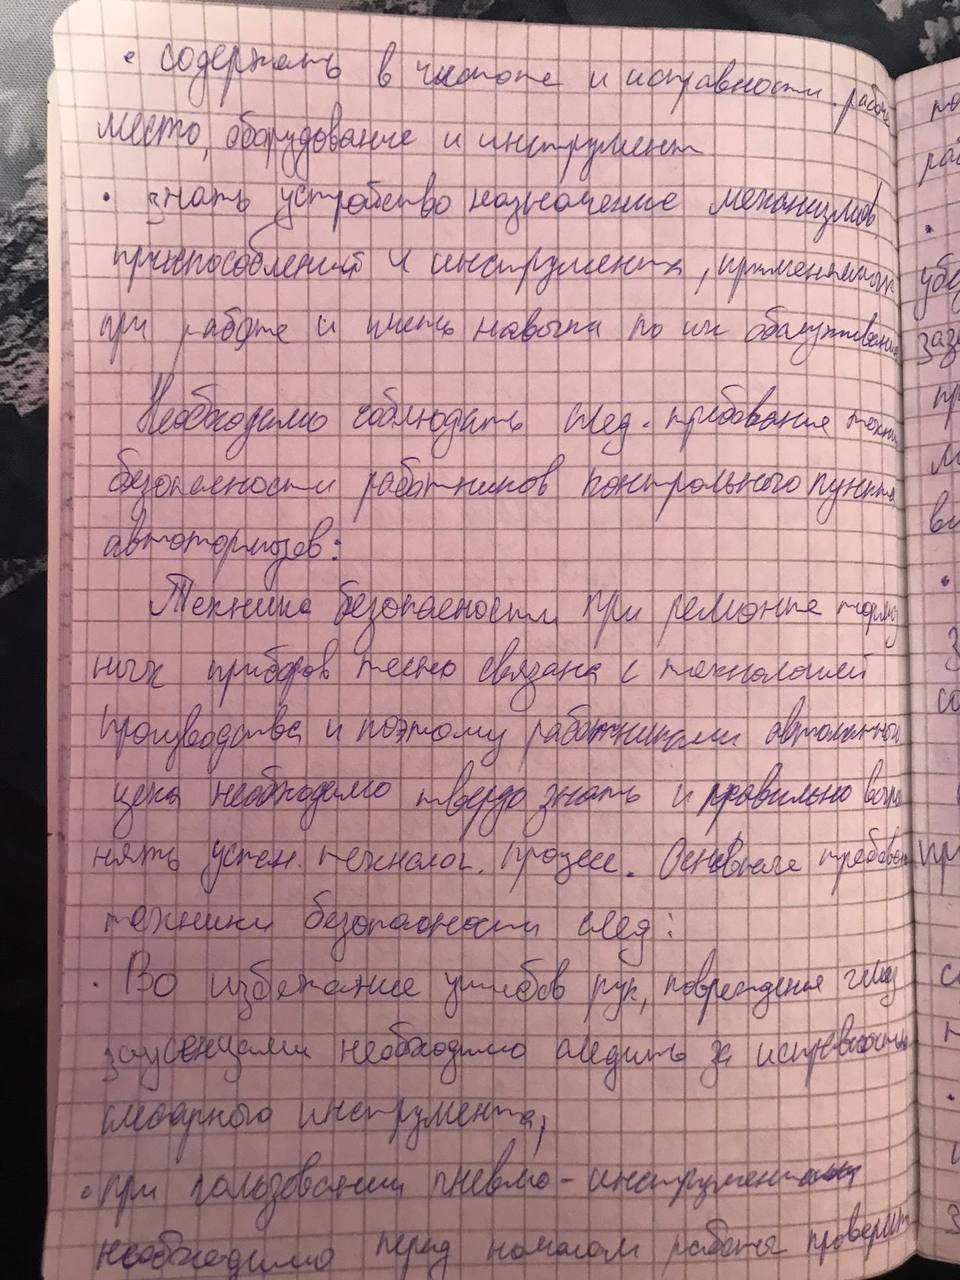 • содержать в чистоте и исправности рабоч
место, оборудование и инструмент
• знать устройство назначение механизмов,
приспособлений и инструмента, применяемых
при работе и иметь навыки по их обслуживанию
Необходимо соблюдать след. требования техни
безопасности работников контрольного пункта
автотормозов:
Техника безопасности при ремонте тормоз
ных приборов тесно связана с технологией
производства и поэтому работниками автоматного
цеха необходимо твердо знать и правильно выпол
нять устан. технолог. процесс. Основные требован
техники безопасности след:
• Во избежание ушибов рук, повреждения глаз
заусенцами необходимо следить за исправностью
слесарного инструмента,
• при пользовании пневмо-инструментом
необходимо перед началом работы проверить